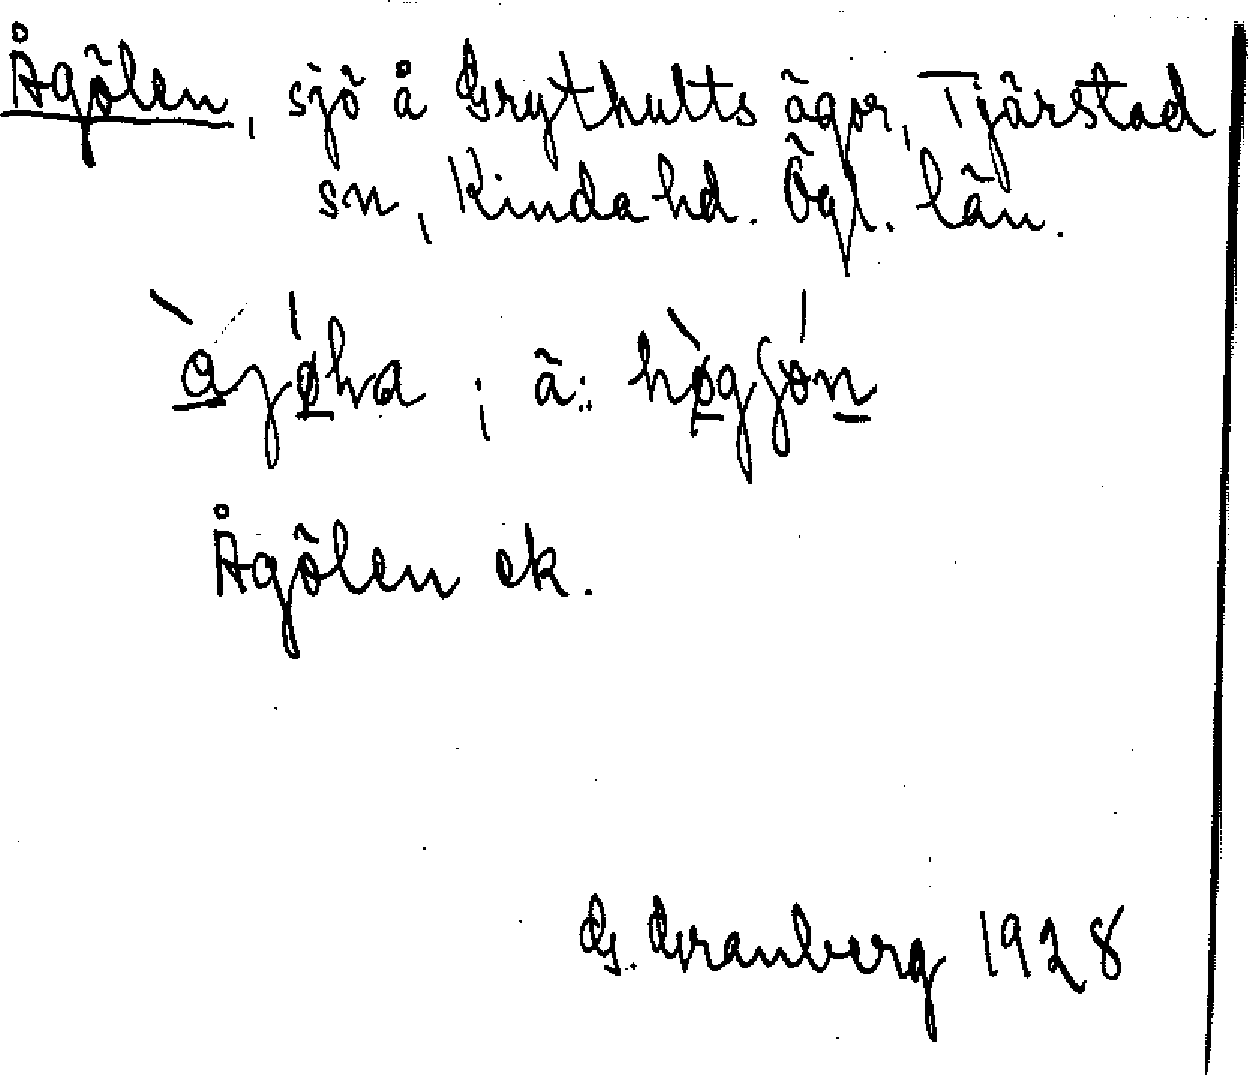 Ågölen, sjö å Grythults ägor, Tjärstad
sn, Kinda hd. Ögl. län.
Ågölen ek.
G. Granberg 1928